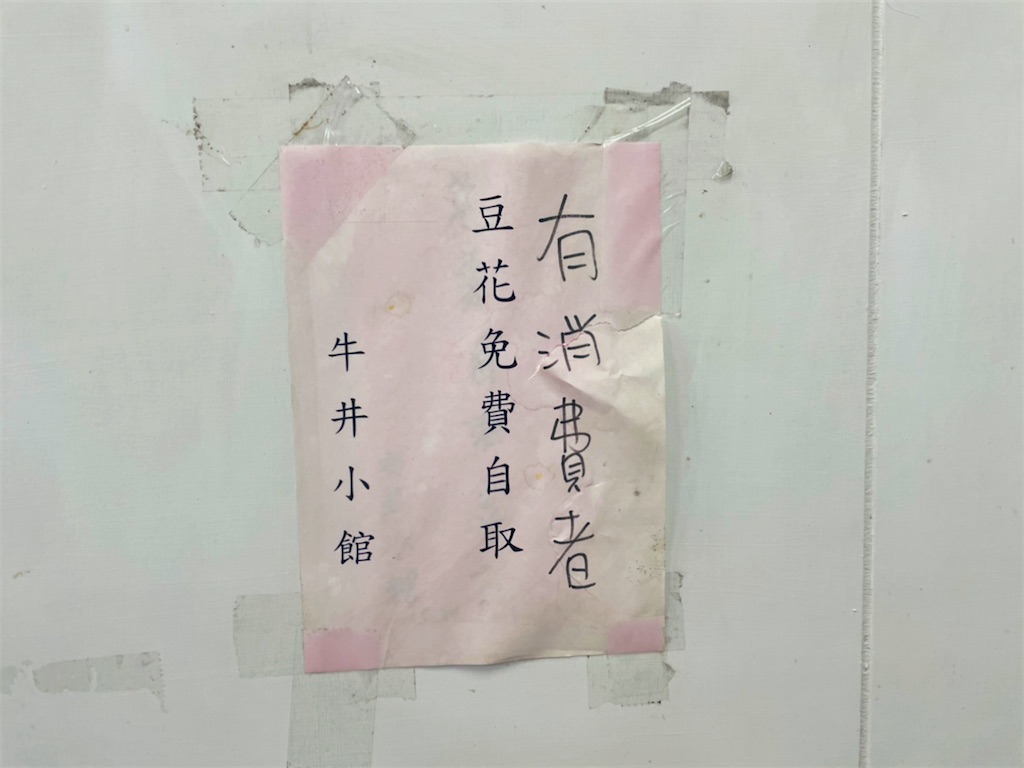 有消費者
豆花免費自取
牛井小館